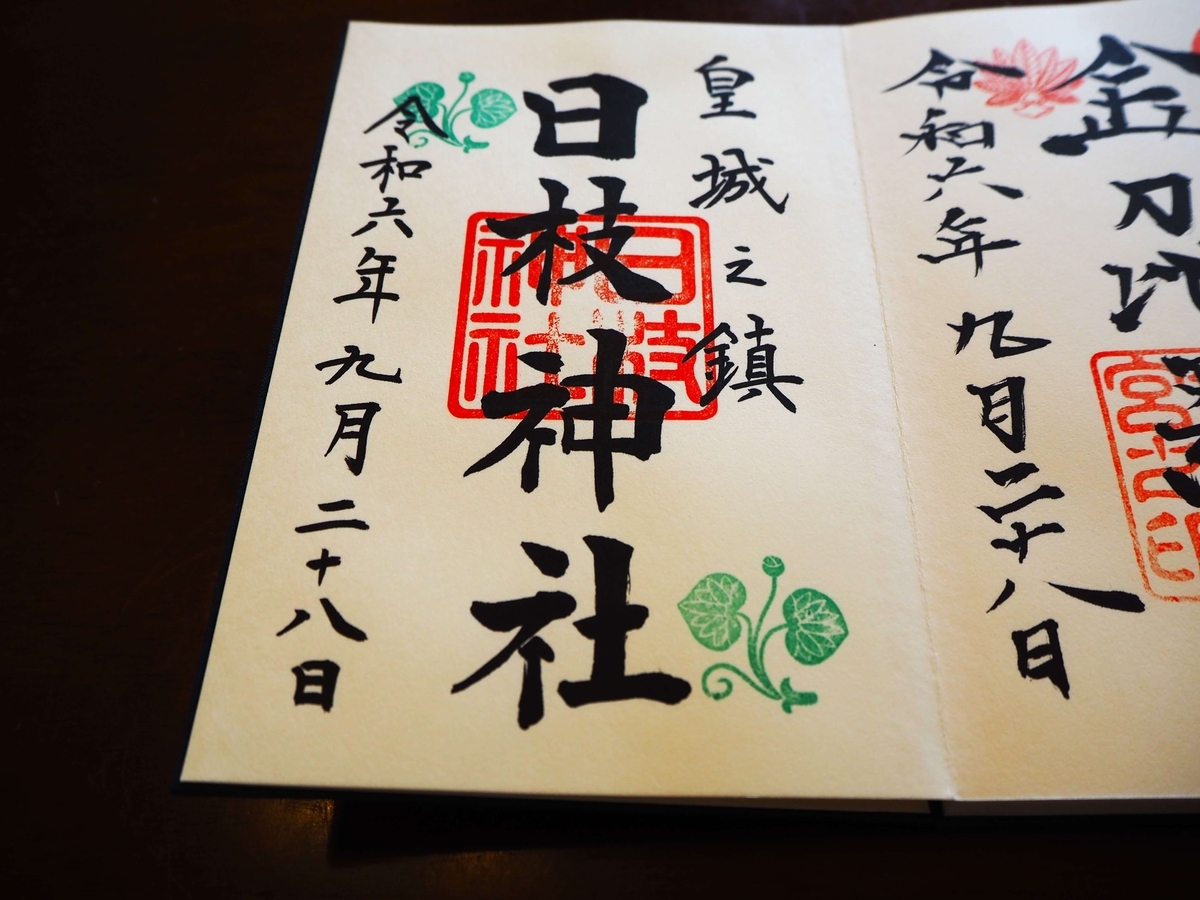 金刀比
令和六年九月二十八日
皇城之鎮
日枝神社
日枝
神社
令和六年九月二十八日